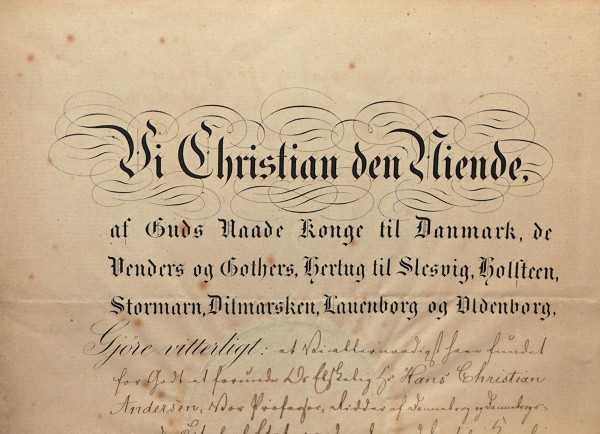 Vi Christian den Niende,
af Guds Naade Konge til Danmark, de
Venders og Gothers, Hertug til Slesvig, Holsteen,
Stormarn, Ditmarsken, Lauenborg og Oldenborg,
Gjöre vitterligt: at Vi allernaadigst have fundet
for Godt at forunde Os Elskelig Hr. Hans Christian
Andersen, Vor Professor, Ridder af Dannebrog og Dannebrogs-